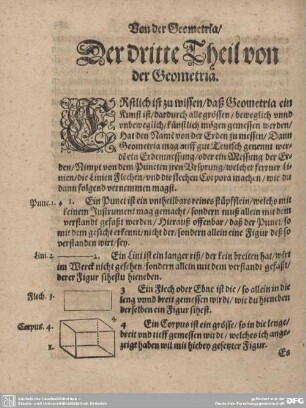 Von der Geometria/
Der dritte Theil von
der Geometria.
ERstlich ist zu wissen/daß Geometria ein
Kunst ist/dardurch alle grössen/beweglich vnnd
vnbeweglich/künstlich mögen gemessen werden/
Hat den Namē von der Erden zu messen/Dann
Geometria mag auff gut Teutsch genennt wer-
dē ein Erdenmessung/oder ein Messung der Er-
den/Nimpt von dem Puncten jren Vrsprung/welcher ferrner Li-
nien/die Linien Flechen/vnd die flechen Corpora machen/wie du
dann folgend vernemmen magst.
Punc.1. 1. Ein Punct ist ein vntheilbars reines stüpfflein/welchs mit
keinem Instrument mag gemacht/sondern muß allein mit dem
verstandt gefaßt werden/Hierauß offenbar/daß der Punct/so
mit dem gesicht erkennt/nicht der/sondern allein eine Figur deß so
verstanden wirt/sey.
Lini.2. 2. Ein Lini ist ein langer riß/der kein breiten hat/wirt
im Werck nicht gesehen/sondern allein mit dem verstandt gefaßt/
derer Figur sihestu hieneben.
Flech. 3. 3 Ein Flech oder Ebne ist die/so allein in die
leng vnnd breit gemessen wirdt/wie du hieneben
derselben ein Figur sihest.
Corpus. 4. 4 Ein Corpus ist ein grösse/so in die lenge/
breit vnd tieff gemessen wirdt/welches ich ange-
zeigt haben wil mit hiebey gesetzter Figur.
Es